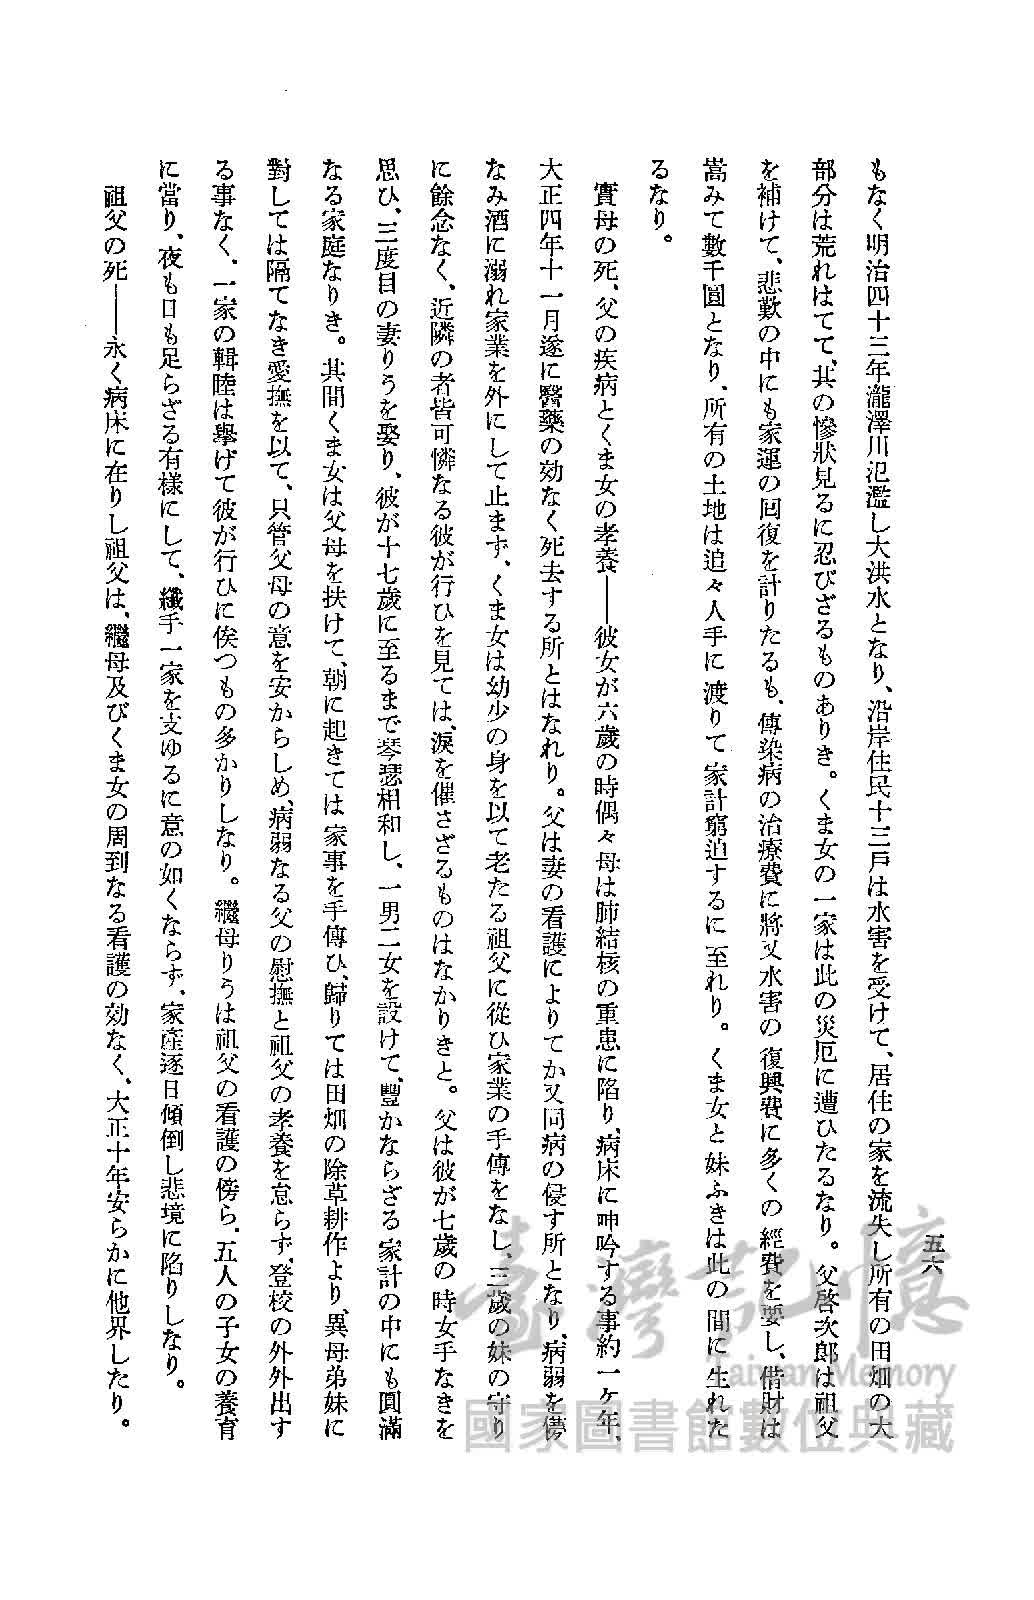 五六
もなく明治四十三年瀧澤川氾濫し大洪水となり、沿岸住民十三戸は水害を受けて、居住の家を流失し所有の田畑の大
部分は荒れはてて、其の慘狀見るに忍びざるものありき。くま女の一家は此の災厄に遭ひたるなり。父啓次郎は祖父
を補けて、悲歎の中にも家運の回復を計りたるも、傳染病の治療費に將又水害の復興費に多くの經費を要し、借財は
嵩みて數千圓となり、所有の土地は追々人手に渡りて家計窮迫するに至れり。くま女と妹ふきは此の間に生れた
るなり。
實母の死、父の疾病とくま女の孝養――彼女が六歲の時偶々母は肺結核の重患に陷り、病床に呻吟する事約一ケ年、
大正四年十一月遂に醫藥の効なく死去する所とはなれり。父は妻の看護によりてか又同病の侵す所となり、病弱を儚
なみ酒に溺れ家業を外にして止まず、くま女は幼少の身を以て老たる祖父に從ひ家業の手傳をなし、三歲の妹の守り
に餘念なく、近隣の者皆可憐なる彼が行ひを見ては、淚を催さざるものはなかりきと。父は彼が七歲の時女手なきを
思ひ、三度目の妻りうを娶り、彼が十七歲に至るまで琴瑟相和し、一男二女を設けて、豐かならざる家計の中にも圓滿
なる家庭なりき。其間くま女は父母を扶けて、朝に起きては家事を手傳ひ、歸りては田畑の除草耕作より、異母弟妹に
對しては隔てなき愛撫を以て、只管父母の意を安からしめ、病弱なる父の慰撫と祖父の孝養を怠らず、登校の外外出す
る事なく、一家の輯睦は擧げて彼が行ひに俟つもの多かりしなり。繼母りうは祖父の看護の傍ら、五人の子女の養育
に當り、夜も日も足らざる有樣にして、纖手一家を支ゆるに意の如くならず、家產逐日傾倒し悲境に陷りしなり。
祖父の死――永く病床に在りし祖父は、繼母及びくま女の周到なる看護の効なく、大正十年安らかに他界したり。
臺灣記憶
Taiwan Memory
國家圖書館數位典藏